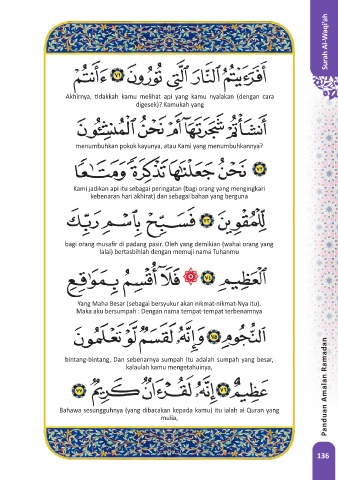 Surah Al-Waqi'ah
أَفَرَءَيْتُمُ ٱلنَّارَ ٱلَّتِي تُورُونَ ٧١ ءَأَنتُمْ
Akhirnya, tidakkah kamu melihat api yang kamu nyalakan (dengan cara
digesek)? Kamukah yang
أَنشَأْتُمْ شَجَرَتَهَآ أَمْ نَحْنُ ٱلْمُنشِـُٔونَ
menumbuhkan pokok kayunya, atau Kami yang menumbuhkannya?
٧٢ نَحْنُ جَعَلْنَٰهَا تَذْكِرَةً وَمَتَٰعًا
Kami jadikan api itu sebagai peringatan (bagi orang yang mengingkari
kebenaran hari akhirat) dan sebagai bahan yang berguna
لِّلْمُقْوِينَ ٧٣ فَسَبِّحْ بِٱسْمِ رَبِّكَ
bagi orang musafir di padang pasir. Oleh yang demikian (wahai orang yang
lalai) bertasbihlah dengan memuji nama Tuhanmu
ٱلْعَظِيمِ ٧٤ ۞ فَلَآ أُقْسِمُ بِمَوَٰقِعِ
Yang Maha Besar (sebagai bersyukur akan nikmat-nikmat-Nya itu).
Maka aku bersumpah : Dengan nama tempat-tempat terbenamnya
ٱلنُّجُومِ ٧٥ وَإِنَّهُۥ لَقَسَمٌ لَّوْ تَعْلَمُونَ
bintang-bintang, Dan sebenarnya sumpah itu adalah sumpah yang besar,
kalaulah kamu mengetahuinya,
عَظِيمٌ ٧٦ إِنَّهُۥ لَقُرْءَانٌ كَرِيمٌ ٧٧
Bahawa sesungguhnya (yang dibacakan kepada kamu) itu ialah al-Quran yang
mulia,
Panduan Amalan Ramadan
136